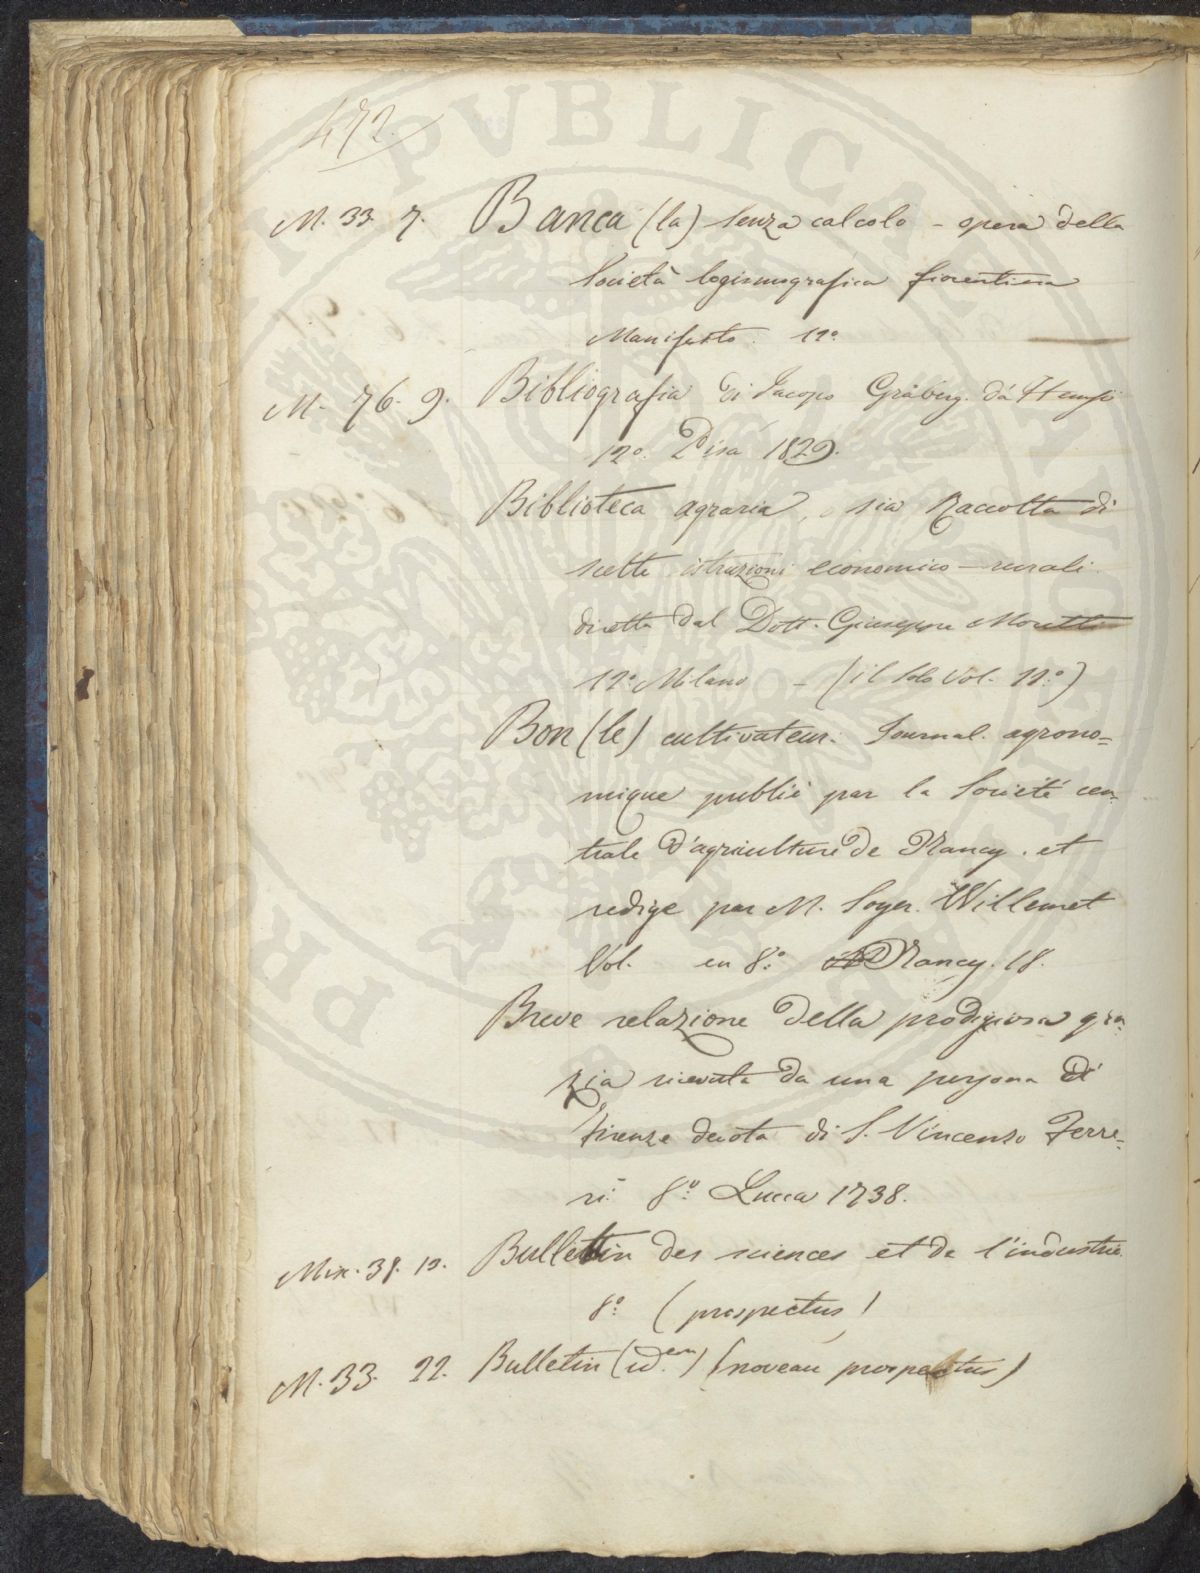 472.
M. 33. 7. Banca (la) senza calcolo - opera della
Società logismografica fiorentina
Manifesto. 12.°
M. 76. 9. Bibliografia di Jacopo Gråberg. da Hemsö
12.° Pisa 1829.
Biblioteca agraria, o sia Raccolta di
scelte istruzioni economico-rurali
diretta dal Dott. Giuseppe Moretti
12.° Milano - (il solo Vol. 11.°)
Bon (le) cultivateur. Journal. agrono=
mique publié par la Societé cen-
trale d'agriculture de Nancy. et
redige par M. Soyer. Willemet
Vol. en 8.° Nancy. 18.
Breve relazione della prodigiosa gra-
zia ricevuta da una persona di
Firenze devota di S. Vincenzo Ferre=
ri. 8.° Lucca 1738.
Mix. 38. 13. Bulletin des sciences et de l'industrie
8.° (prospectus)
M. 33. 22. Bulletin (id.em) (noveau prospectus)
PVBLICAE